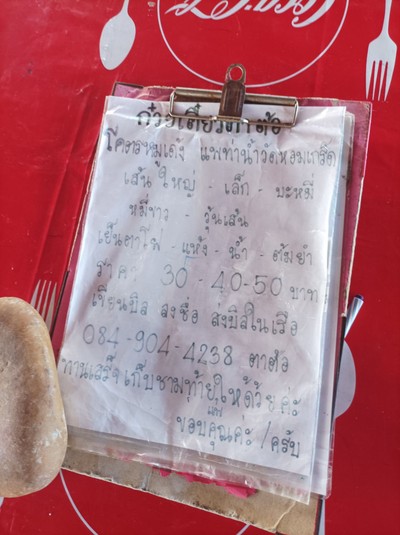 Coca-Cola
ก๋วยเตี๋ยวตาต้อ
โคตรหมูเด้ง แพท่าน้ำวัดหอมเกร็ด
เส้นใหญ่ - เล็ก - บะหมี่
หมี่ขาว - วุ้นเส้น
เย็นตาโฟ - แห้ง - น้ำ - ต้มยำ
ราคา 30 - 40 - 50 บาท
เขียนบิล ลงชื่อ ส่งบิลในเรือ
084-904-4238 ตาต้อ
ทานเสร็จเก็บชามทุ้ายให้ด้วยค่ะ
ขอบคุณค่ะ / ครับ